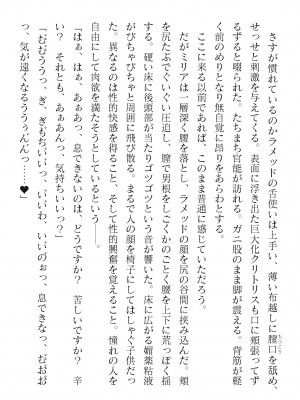 さすが慣れているのかラメッドの舌使いは上手い、薄い布越しに膣口を舐め、
せっせと刺激を与えてくる。表面に浮き出た巨大化クリトリスも口に頬張ってず
ずるっと啜られた。たちまち官能が訪れる。ガニ股のまま脚が震え。背筋が軽
く前のめりとなり無自覚に昂りをあらわとする。
ここに来る以前であれば、このまま普通に感じていただろう。
だがミリアは一層深く腰を落とし、ラメッドの顔を尻の谷間に挟み込んだ。頬
を尻たぶでぐいぐい圧迫し、膣で男根をしごくかのごとく腰を上下に荒っぽく揺
する。硬い床に後頭部が当たりゴツゴツという音が響いた。床に広がる媚薬粘液
がびちゃびちゃと周囲に飛び散る。まるで人の顔を椅子にしてはしゃぐ子供だっ
た。異なるのは性的快感を得ること、そして性的興奮を覚えること。憧れの人を
自由にして肉欲を満たそうとしているという――
「はぁ、はぁ、あぁぁっ、息できないのは、どうですか？　苦しいですか？　辛
い？　それとも、あぁあんっ、気持ちいいっ？」
「むむううっ、ぎ、ぎもぢいいっ、いいわ、いいのぉっ、息できなっ、むおおお
っ、気が遠くなるううぅんんっ……♥」